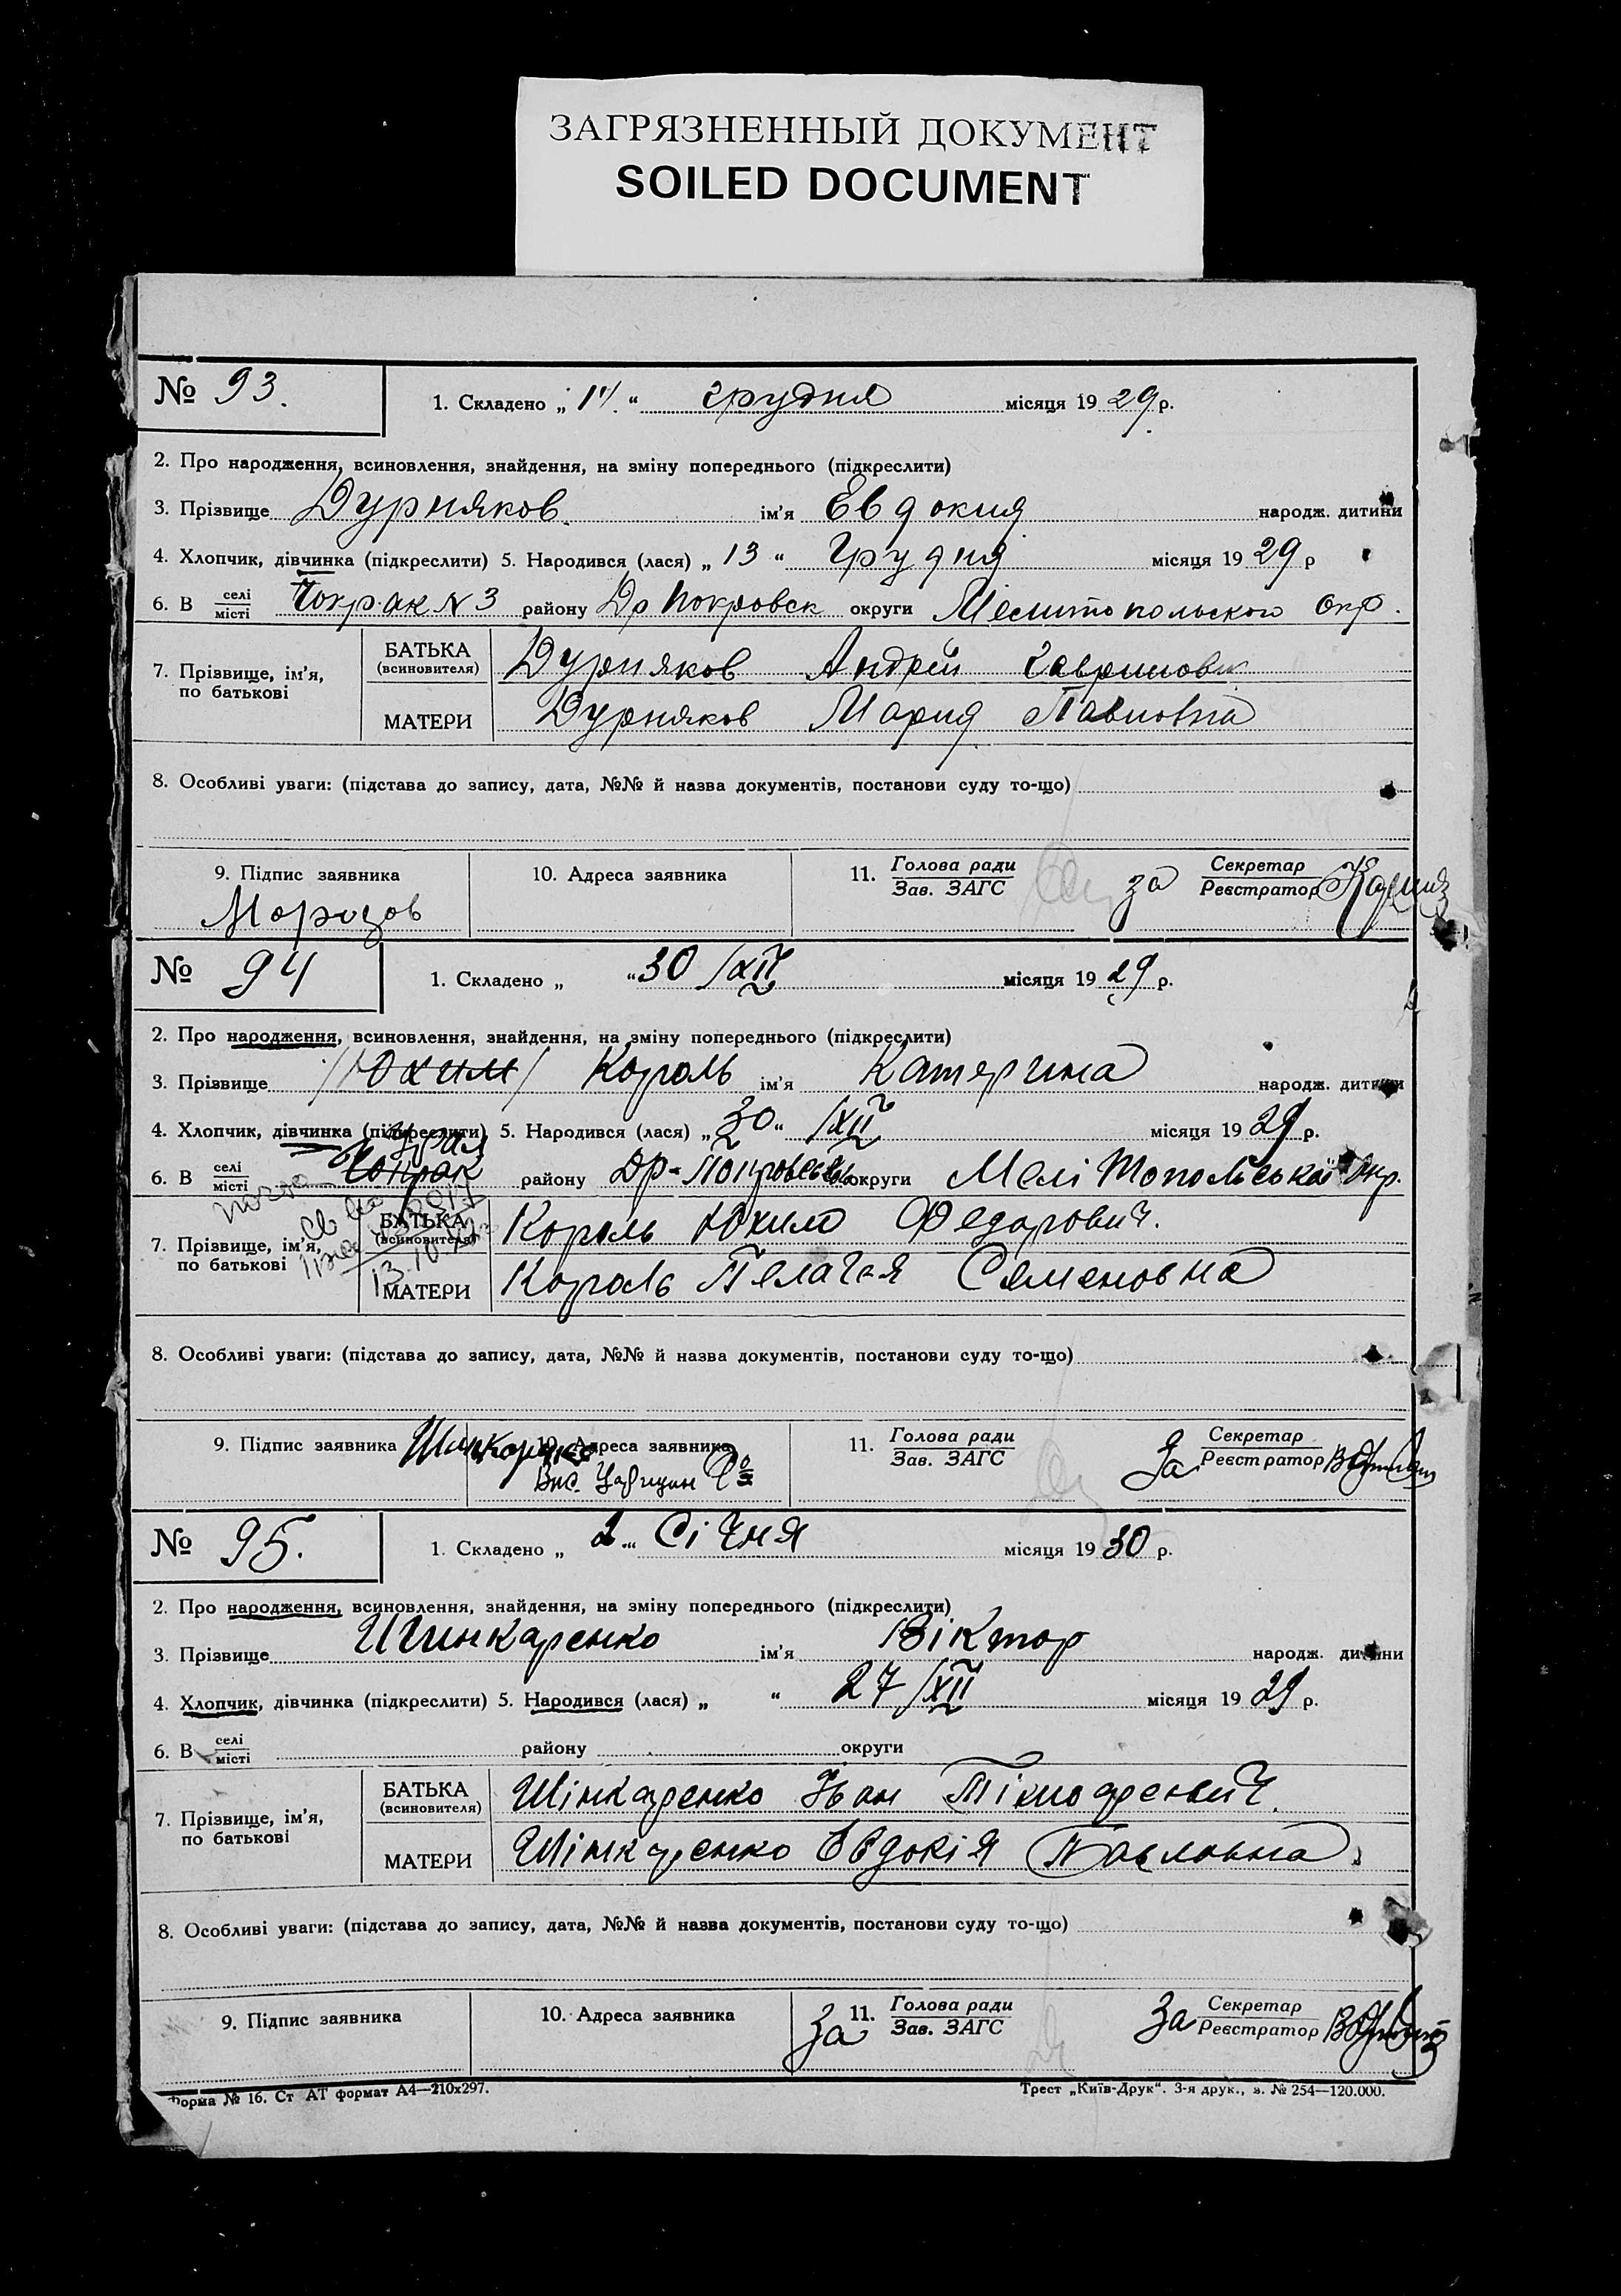 ЗАГРЯЗНЕННЫЙ ДОКУМЕНТ
SOILED DOCUMENT
№ 93. 1. Складено „ 14. “ грудня місяця 19 29 р.
2. Про народження, всиновлення, знайдення, на зміну попереднього (підкреслити)
3. Прізвище Дурняков ім'я Евдокия народж. дитини
4. Хлопчик, дівчинка (підкреслити) 5. Народився (лася) „ 13 “ Грудня місяця 19 29 р
6. В селі/місті Чокрак N 3 району Др Покровск округи Мелитопольского окр.
7. Прізвище, ім'я, по батькові
БАТЬКА (всиновителя) Дурняков Андрей Гаврилович
МАТЕРИ Дурняков Мария Павловна
8. Особливі уваги: (підстава до запису, дата, №№ й назва документів, постанови суду то-що)
9. Підпис заявника 10. Адреса заявника 11. Голова ради/Зав. ЗАГС за Секретар/Реєстратор
Морозов
№ 94 1. Складено „ “ 30/XII місяця 19 29 р.
2. Про народження, всиновлення, знайдення, на зміну попереднього (підкреслити)
3. Прізвище /Юхим/ Король ім'я Катерина народж. дитини
4. Хлопчик, дівчинка (підкреслити) 5. Народився (лася) „ 30 “ /XII місяця 19 29 р.
6. В селі/місті Чокрак району Др-Покровський округи Мелітопольської Окр.
7. Прізвище, ім'я, по батькові
13.10
БАТЬКА (всиновителя) Король Юхим Федорович.
МАТЕРИ Король Пелагея Семеновна
8. Особливі уваги: (підстава до запису, дата, №№ й назва документів, постанови суду то-що)
9. Підпис заявника Шинкаренко 10. Адреса заявника 11. Голова ради/Зав. ЗАГС За Секретар/Реєстратор
№ 95. 1. Складено „ 2 “ Січня місяця 19 30 р.
2. Про народження, всиновлення, знайдення, на зміну попереднього (підкреслити)
3. Прізвище Шинкаренко ім'я Віктор народж. дитини
4. Хлопчик, дівчинка (підкреслити) 5. Народився (лася) „ “ 27/XII місяця 19 29 р.
6. В селі/місті району округи
7. Прізвище, ім'я, по батькові
БАТЬКА (всиновителя) Шінкаренко Іван Тімофеевич.
МАТЕРИ Шінкаренко Евдокія Павловна
8. Особливі уваги: (підстава до запису, дата, №№ й назва документів, постанови суду то-що)
9. Підпис заявника 10. Адреса заявника За 11. Голова ради/Зав. ЗАГС За Секретар/Реєстратор
Форма № 16. Ст АТ формат А4—210х297. Трест „Київ-Друк“. 3-я друк., з. № 254—120.000.